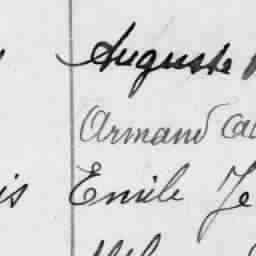 Auguste
Armand Ca
is Emile Je